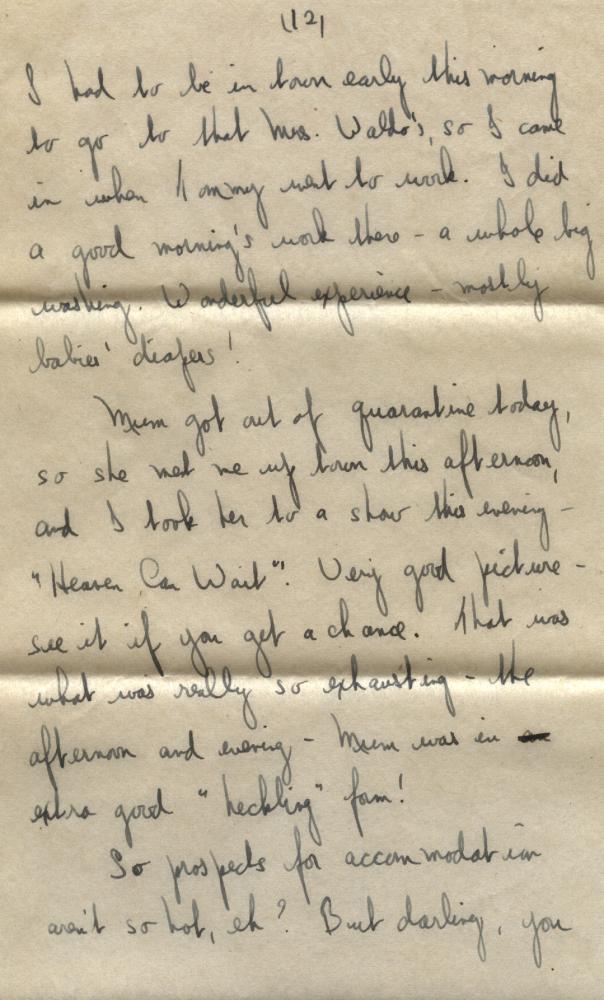 (12)
I had to be in town early this morning
to go to that Mrs. Waldo's, so I came
in when Tommy went to work. I did
a good morning's work there - a whole big
washing. Wonderful experience - mostly
babies' diapers!
Mum got out of quarantine today,
so she met me up town this afternoon,
and I took her to a show this evening -
"Heaven Can Wait". Very good picture -
see it if you get a chance. That was
what was really so exhausting - the
afternoon and evening - Mum was in
extra good "heckling" form!
So prospects for accommodation
aren't so hot, eh? But darling, you